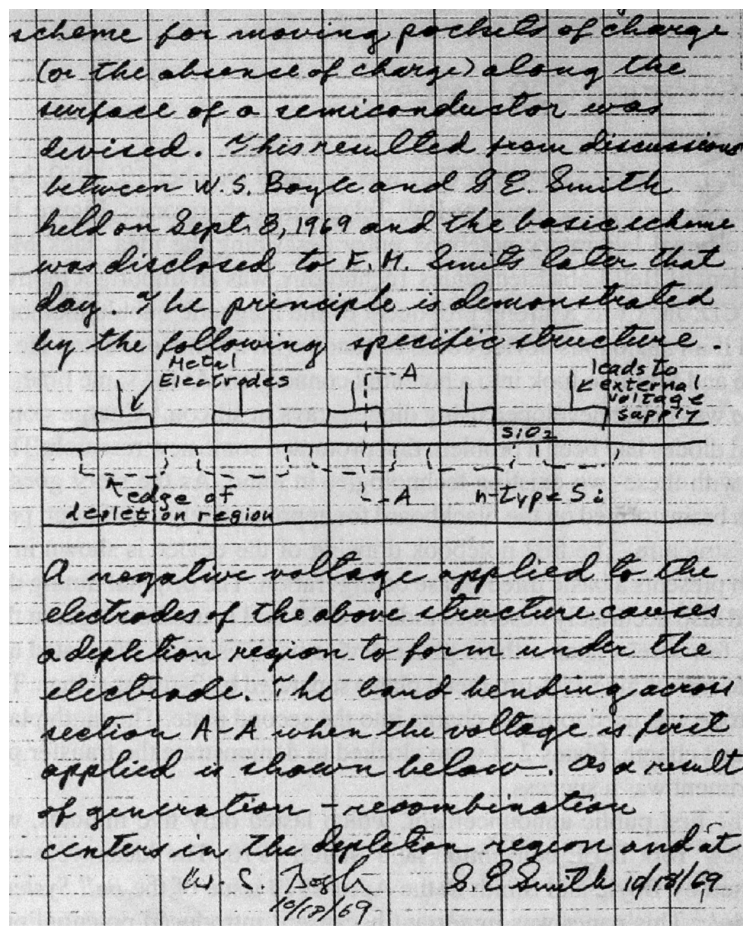 scheme for moving pockets of charge
(or the absence of charge) along the
surface of a semiconductor was
devised. This resulted from discussions
between W.S. Boyle and G.E. Smith
held on Sept. 8, 1969 and the basic scheme
was disclosed to F.M. Smits later that
day. The principle is demonstrated
by the following specific structure.
Metal
Electrodes
A
leads to
external
voltage
supply
SiO2
edge of
depletion region
A
n-type Si
A negative voltage applied to the
electrodes of the above structure causes
a depletion region to form under the
electrode. The band bending across
section A-A when the voltage is first
applied is shown below. As a result
of generation - recombination
centers in the depletion region and at
W. S. Boyle
10/18/69
G. E. Smith 10/18/69